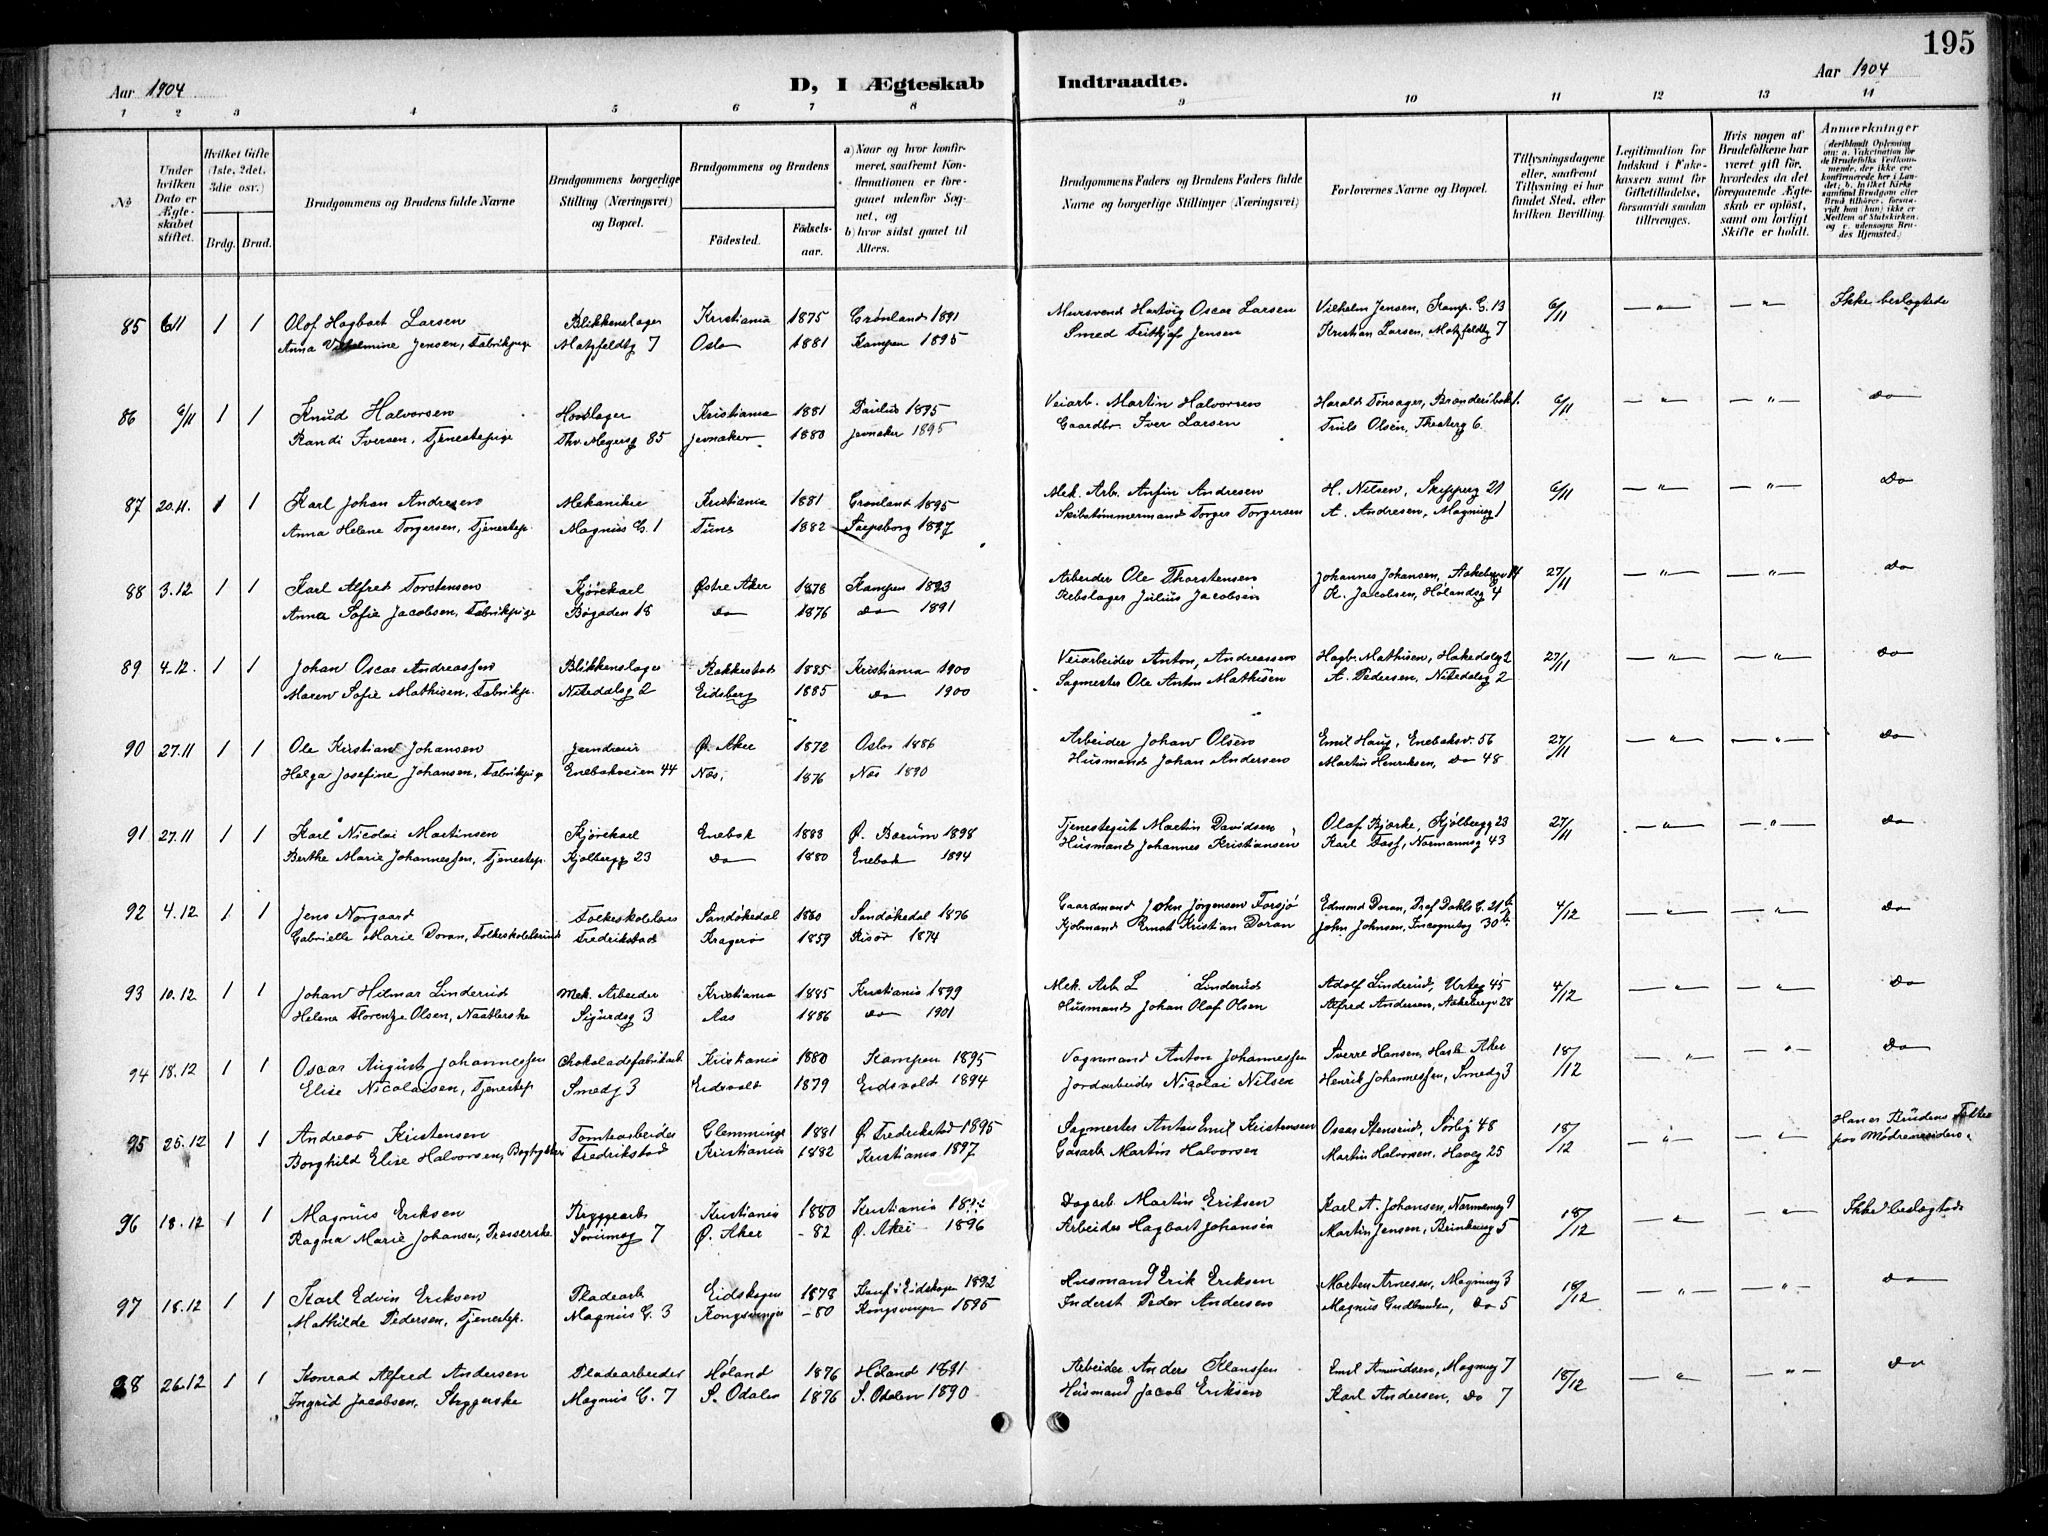 195
Aar 1904
D, I Ægteskab Indtraadte.
Aar 1904
1 2 3 4 5 6 7 8 9 10 11 12 13 14
No
Under hvilken Dato er Ægteskabet stiftet.
Hvilket Gifte (1ste, 2det, 3die osv.)
Brdg. Brud.
Brudgommens og Brudens fulde Navne
Brudgommens borgerlige Stilling (Næringsvei) og Bopæl.
Brudgommens og Brudens
Födested. Födselsaar.
a) Naar og hvor konfirmeret, saafremt Konfirmationen er foregaaet udenfor Sognet, og
b) hvor sidst gaaet til Alters.
Brudgommens Faders og Brudens Faders fulde Navne og borgerlige Stillinger (Næringsvei)
Forlovernes Navne og Bopæl.
Tillysningsdagene eller, saafremt Tillysning ei har fundet Sted, efter hvilken Bevilling.
Legitimation for Indskud i Enkekassen samt for Giftetilladelse, forsaavidt saadan tiltrænges.
Hvis nogen af Brudefolkene har været gift för, hvorledes da det foregaaende Ægteskab er oplöst, samt om lovligt Skifte er holdt.
Anmerkninger (deriblandt Oplysning om: a. Vakcination for de Brudefolks Vedkommende, der ikke ere konfirmerede her i Landet; b. hvilket Kirkesamfund Brudgom eller Brud tilhörer, forsaavidt han (hun) ikke er Medlem af Statskirken, og c. udensogns Brudes Hjemsted.)
85 6/11 1 1 Olof Hagbart Larsen Blikkenslager Kristiania 1875 Grønland 1891 Mursvend Hartvig Oscar Larsen Vilhelm Jensen, Kamp. G. 13 6/11 — " — — " — Ikke beslægtede
Anna Vilhelmine Jensen, Fabrikpige Motzfeldtg 7 Oslo 1881 Kampen 1895 Smed Frithjof Jensen Kristian Larsen, Motzfeldtg 7
86 6/11 1 1 Knud Halvorsen Hovslager Kristiania 1881 Paulus 1895 Veiarb. Martin Halvorsen Harald Tønsager, 6/11 — " — — " — Do
Randi Iversen, Tjenestepige Thv. Meyersg 85 Jevnaker 1880 Jevnaker 1895 Gaardbr. Iver Larsen Truls Olsen, Theaterg 6
87 20.11. 1 1 Karl Johan Andresen Mekaniker Kristiania 1881 Grønland 1895 Mek. Arb. Anfin Andresen H. Nilsen, Skipperg 21 6/11 — " — — " — Do
Anna Helene Torgersen, Tjenestep. Magnus G. 1 Tune 1882 Sarpsborg 1897 Skibstømmermand Torger Torgersen A. Andresen, Magnusg 1
88 3.12 1 1 Karl Alfred Torstensen Kjørekarl Østre Aker 1878 Kampen 1893 Arbeider Ole Thorstensen Johannes Johansen, Aakebergv 14 27/11 — " — — " — Do
Anna Sofie Jacobsen, Fabrikpige Bøgaden 18 Do 1876 Do 1891 Rebslager Julius Jacobsen K. Jacobsen, Hølandsg 4
89 4.12. 1 1 Johan Oscar Andreassen Blikkenslager Rakkestad 1885 Kristiania 1900 Veiarbeider Anton Andreassen Hagb. Mathisen, Hakedalsg 2 27/11 — " — — " — Do
Maren Sofie Mathisen, Fabrikp. Nitedalsg 2 Eidsberg 1885 Do 1900 Sagmester Ole Anton Mathisen A. Pedersen, Nitedalsg 2
90 27.11 1 1 Ole Kristian Johansen Jerndreier Ø. Aker 1872 Oslo 1886 Arbeider Johan Olsen Emil Haug, Enebakv. 56 27/11 — " — — " — Do
Helga Josefine Johansen, Fabrikpige Enebakveien 44 Næs 1876 Næs 1890 Husmand Johan Andersen Martin Henriksen, Do 48
91 27.11 1 1 Karl Nicolai Martinsen Kjørekarl Enebak 1883 Ø. Bærum 1898 Tjenestegut Martin Davidsen Olaf Bjorke, Kjølbergg 23 27/11 — " — — " — Do
Berthe Marie Johannessen, Tjenestep. Kjolbergg 23 Do 1880 Enebak 1894 Husmand Johannes Kristiansen Karl Foss, Normannsg 43
92 4.12 1 1 Jens Norgaard Folkeskolelærer Sandøkedal 1860 Sandøkedal 1876 Gaardmand John Jørgensen Forsjø Edmond Doran, Prof Dahls G. 21 b 4/12 — " — — " — Do
Gabrielle Marie Doran, Folkeskolelærerinde Fredrikstad Kragerø 1859 Risør 1874 Kjobmand Ernst Kristian Doran John Johnsen, Incognitog 30 b
93 10.12 1 1 Johan Hilmar Linderud Mek. Arbeider Kristiania 1885 Kristiania 1899 Mek. Arb. L Linderud Adolf Linderud, Urteg 45 4/12 — " — — " — Do
Helene Florentze Olsen, Naatlerske Sigurdsg 3 Aas 1886 Do 1901 Husmand Johan Olaf Olsen Alfred Andersen, Aakebergv 28
94 18.12 1 1 Oscar August Johannessen Chokoladefabrikarb. Kristiania 1880 Kampen 1895 Vognmand Anton Johannessen Sverre Hansen, Hasle Aker 18/12 — " — — " — Do
Elise Nicolaisen, Tjenestep. Smedg 3 Eidsvold 1879 Eidsvoldt 1894 Jordarbeider Nicolai Nilsen Henrik Johannessen, Smedg 3
95 25.12 1 1 Andreas Kristensen Tomtearbeider Glemminge 1881 Ø. Fredrikstad 1895 Sagmester Anton Emil Kristensen Oscar Stensrud, Sørlig 48 18/12 — " — — " — Han er Brudens Fætter
Borghild Elise Halvorsen, Fredrikstad Kristiania 1882 Kristiania 1897 Gasarb. Martin Halvorsen Martin Halvorsen, Haveg 25 paa Mødrenesiden.
96 18.12 1 1 Magnus Eriksen Bryggearb. Kristiania 1880 Kristiania Dagarb. Martin Eriksen Karl A. Johansen, Normanng 9 18/12 — " — — " — Ikke beslægtede
Ragna Marie Johansen, Presserske Sørumsg 7 Ø. Aker - 82 Ø. Aker 1896 Arbeider Hagbart Johansen Martin Jensen, Brinkensg 5
97 18.12 1 1 Karl Edvin Eriksen Pladearb. Eidskogen 1878 Konf i Eidskogen 1892 Husmand Erik Eriksen Morten Arnesen, Magnusg 3 18/12 — " — — " — Do
Mathilde Pedersen, Tjenestep. Magnus G. 3 Kongsvinger - 80 Kongsvinger 1895 Inderst Peder Andersen Magnus Gudbranden, Do 5
98 26.12 1 1 Konrad Alfred Andersen Pladearbeider Høland 1876 Høland 1891 Arbeider Anders Klaussen Emil Amundsen, Magnusg 7 18/12 — " — — " — Do
Ingrid Jacobsen, Strygerske Magnus G. 7 S. Odalen 1876 S. Odalen 1890 Husmand Jacob Eriksen Karl Andersen, Do 7